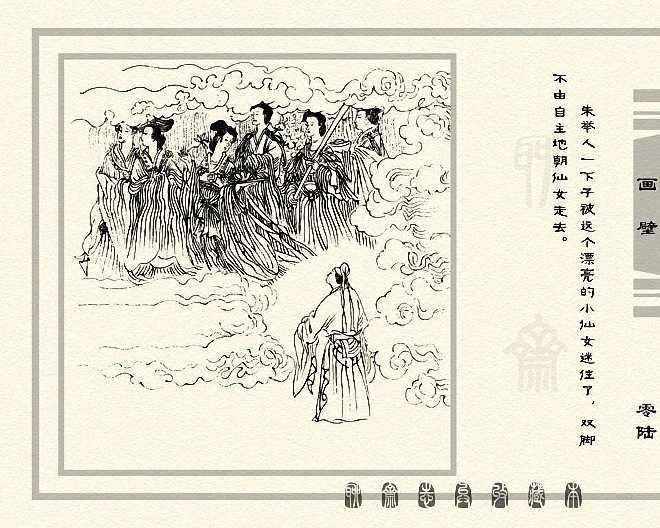 画壁
零陆
朱举人一下子被这个漂亮的小仙女迷住了，双脚
不由自主地朝仙女走去。